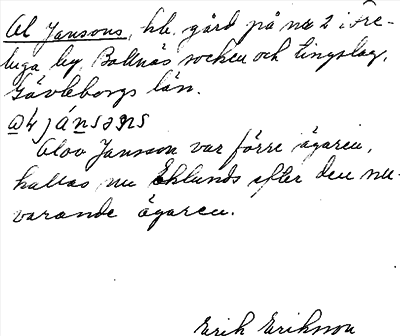 Ol Jansons, hb. gård på nr 2 i Fre-
luga by, Bollnäs socken och tingslag,
Gävleborgs län.
jánsəns
Olov Jansson var förre ägaren,
kallas nu Eklunds efter den nu-
varande ägaren.
Erik Eriksson